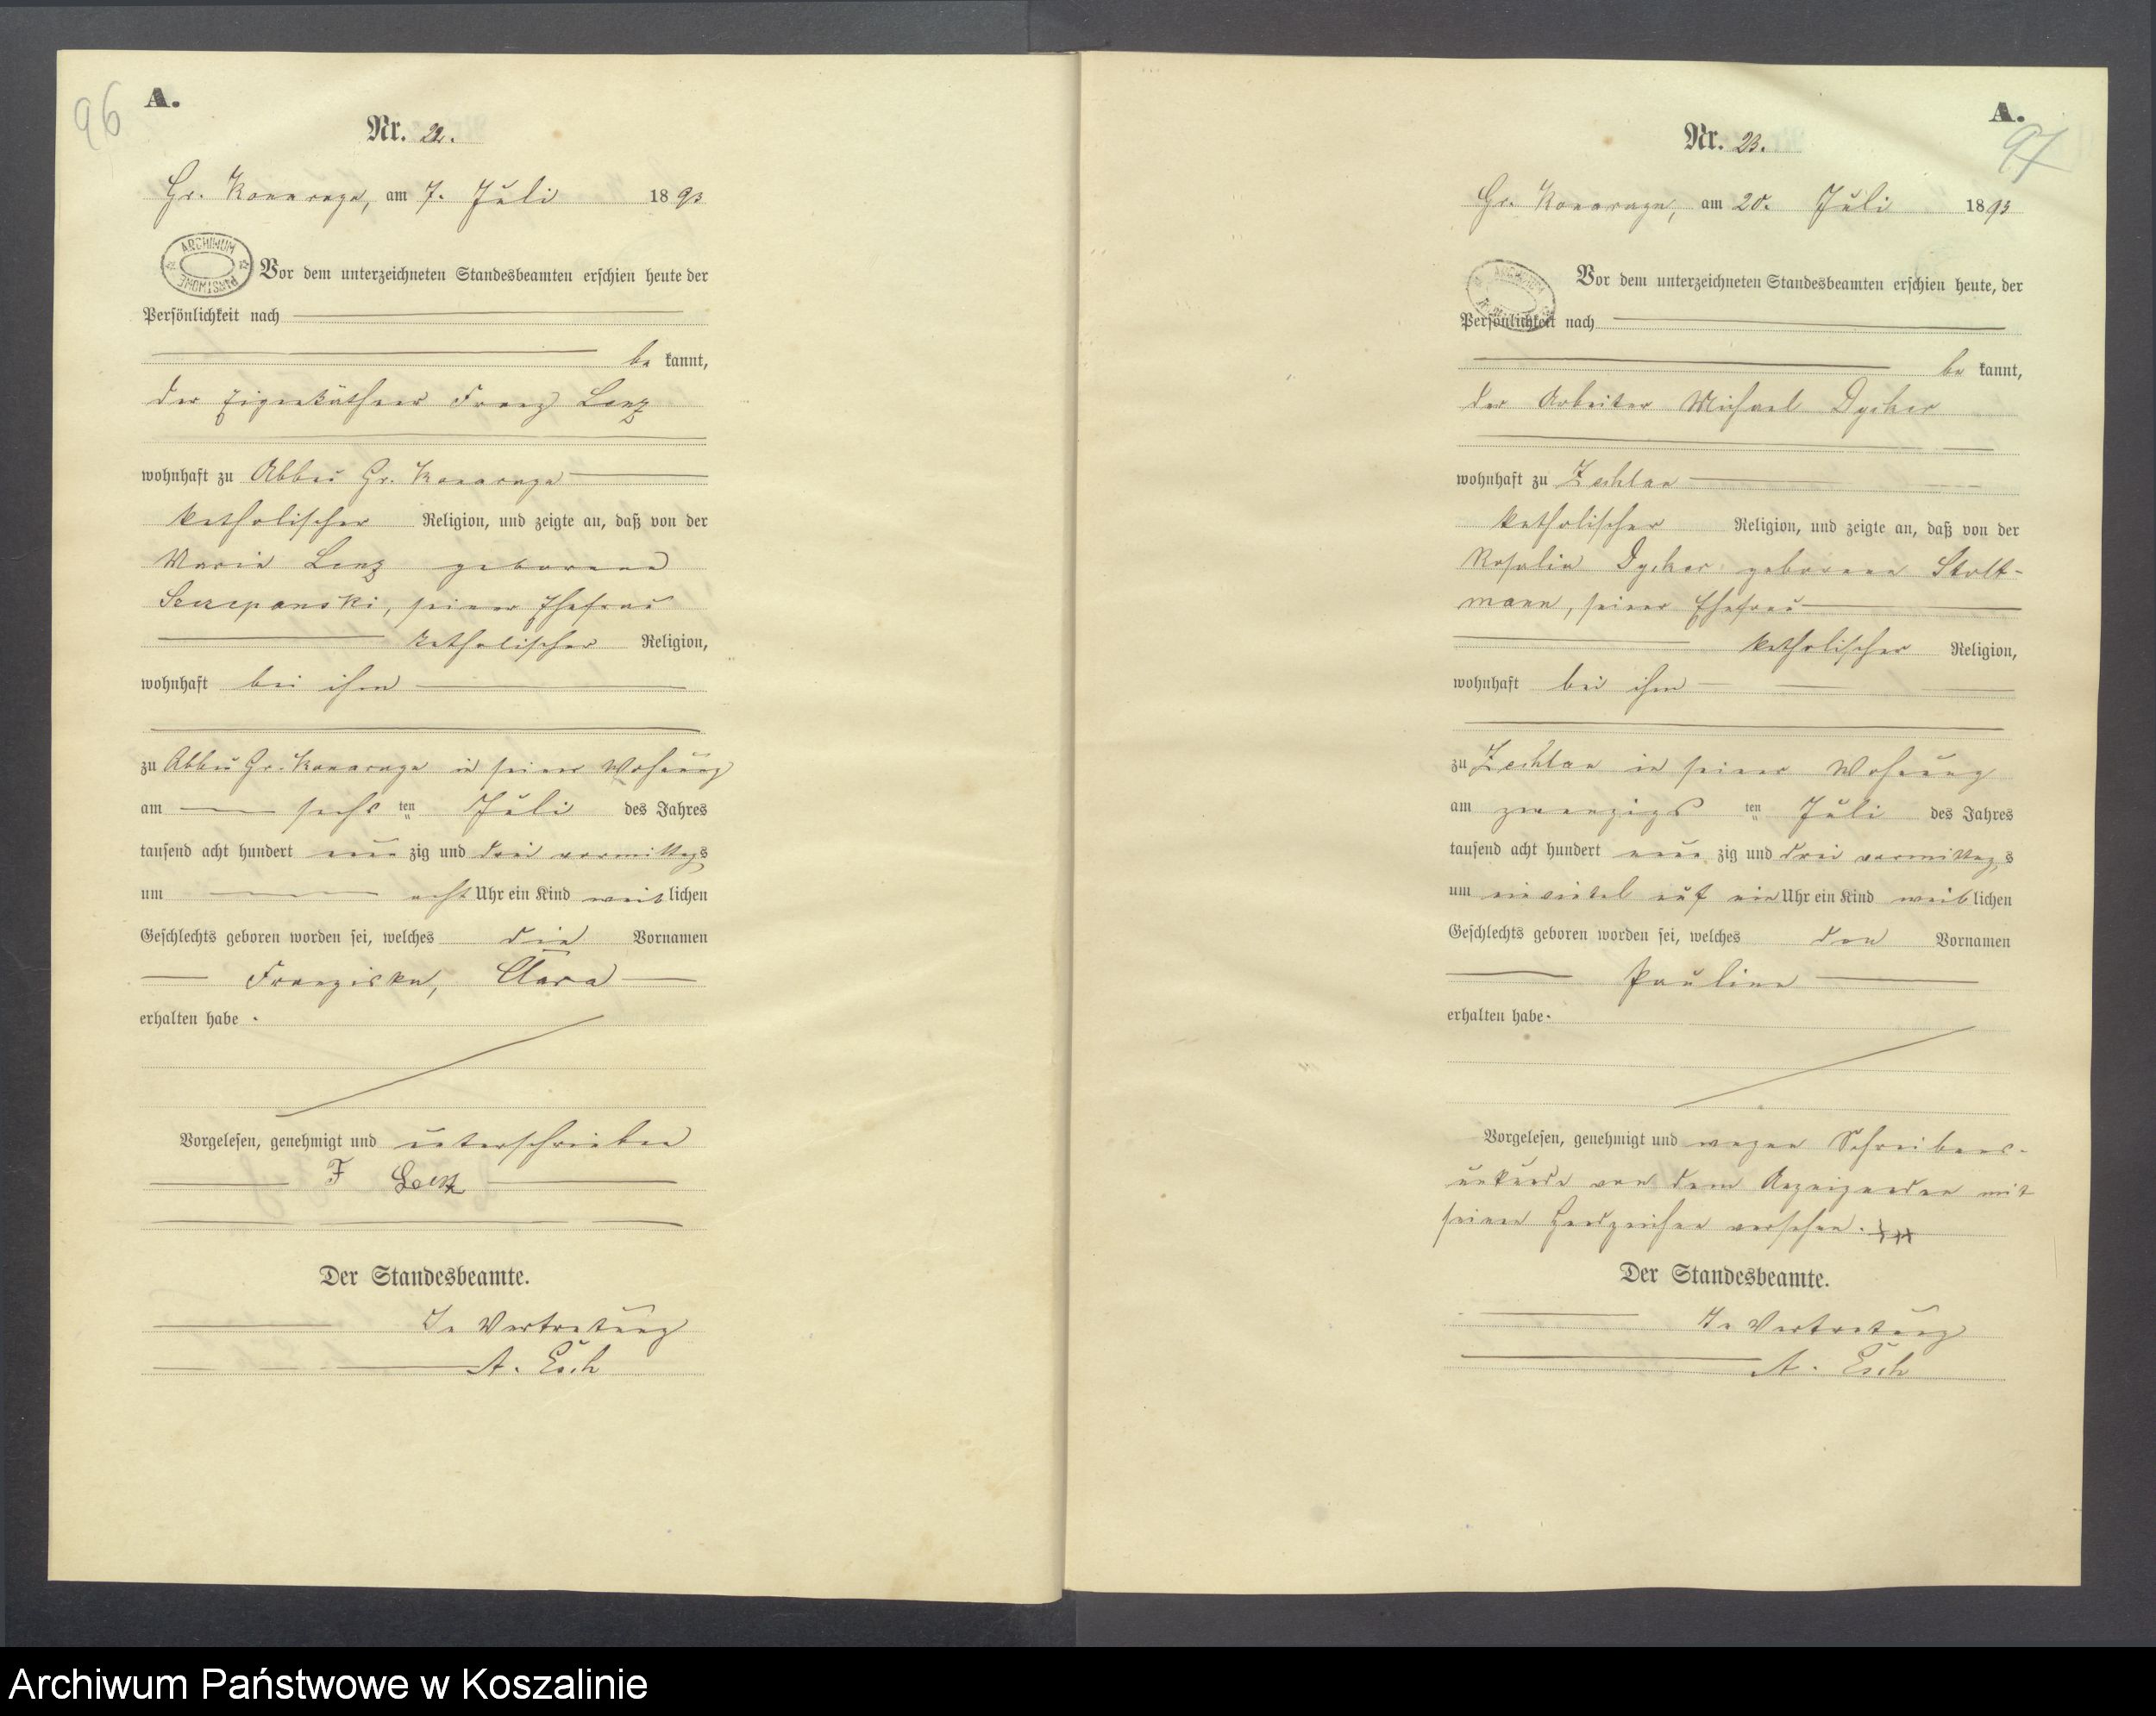 96
A.
Nr. 22.
Gr. Konarczyn, am 7. Juli 1893
ARCHIWUM PAŃSTWOWE
Vor dem unterzeichneten Standesbeamten erschien heute der
Persönlichkeit nach
be kannt,
der Eigenkäthner Franz Lenz
wohnhaft zu Abbau Gr. Konarczyn
katholischer Religion, und zeigte an, daß von der
Maria Lenz geborene
Szczepanski, seiner Ehefrau
katholischer Religion,
wohnhaft bei ihm
zu Abbau Gr. Konarczyn in seiner Wohnung
am sechs ten Juli des Jahres
tausend acht hundert neun zig und drei vormittags
um acht Uhr ein Kind weib lichen
Geschlechts geboren worden sei, welches die Vornamen
Franziska, Clara
erhalten habe.
Vorgelesen, genehmigt und unterschrieben
F Lenz
Der Standesbeamte.
In Vertretung
A. Esch
A.
97
Nr. 23.
Gr. Konarczyn, am 20. Juli 1893
Vor dem unterzeichneten Standesbeamten erschien heute, der
Persönlichkeit nach
be kannt,
der Arbeiter Michael Dycker
wohnhaft zu Zechlau
katholischer Religion, und zeigte an, daß von der
Rosalie Dycker geborene Stolt-
mann, seiner Ehefrau
katholischer Religion,
wohnhaft bei ihm
zu Zechlau in seiner Wohnung
am zwanzigs ten Juli des Jahres
tausend acht hundert neun zig und drei vormittags
um einviertel auf ein Uhr ein Kind weib lichen
Geschlechts geboren worden sei, welches den Vornamen
Pauline
erhalten habe.
Vorgelesen, genehmigt und wegen Schreibens-
unkunde von dem Anzeigenden mit
seinen Handzeichen versehen. +++
Der Standesbeamte.
In Vertretung
A. Esch
Archiwum Państwowe w Koszalinie